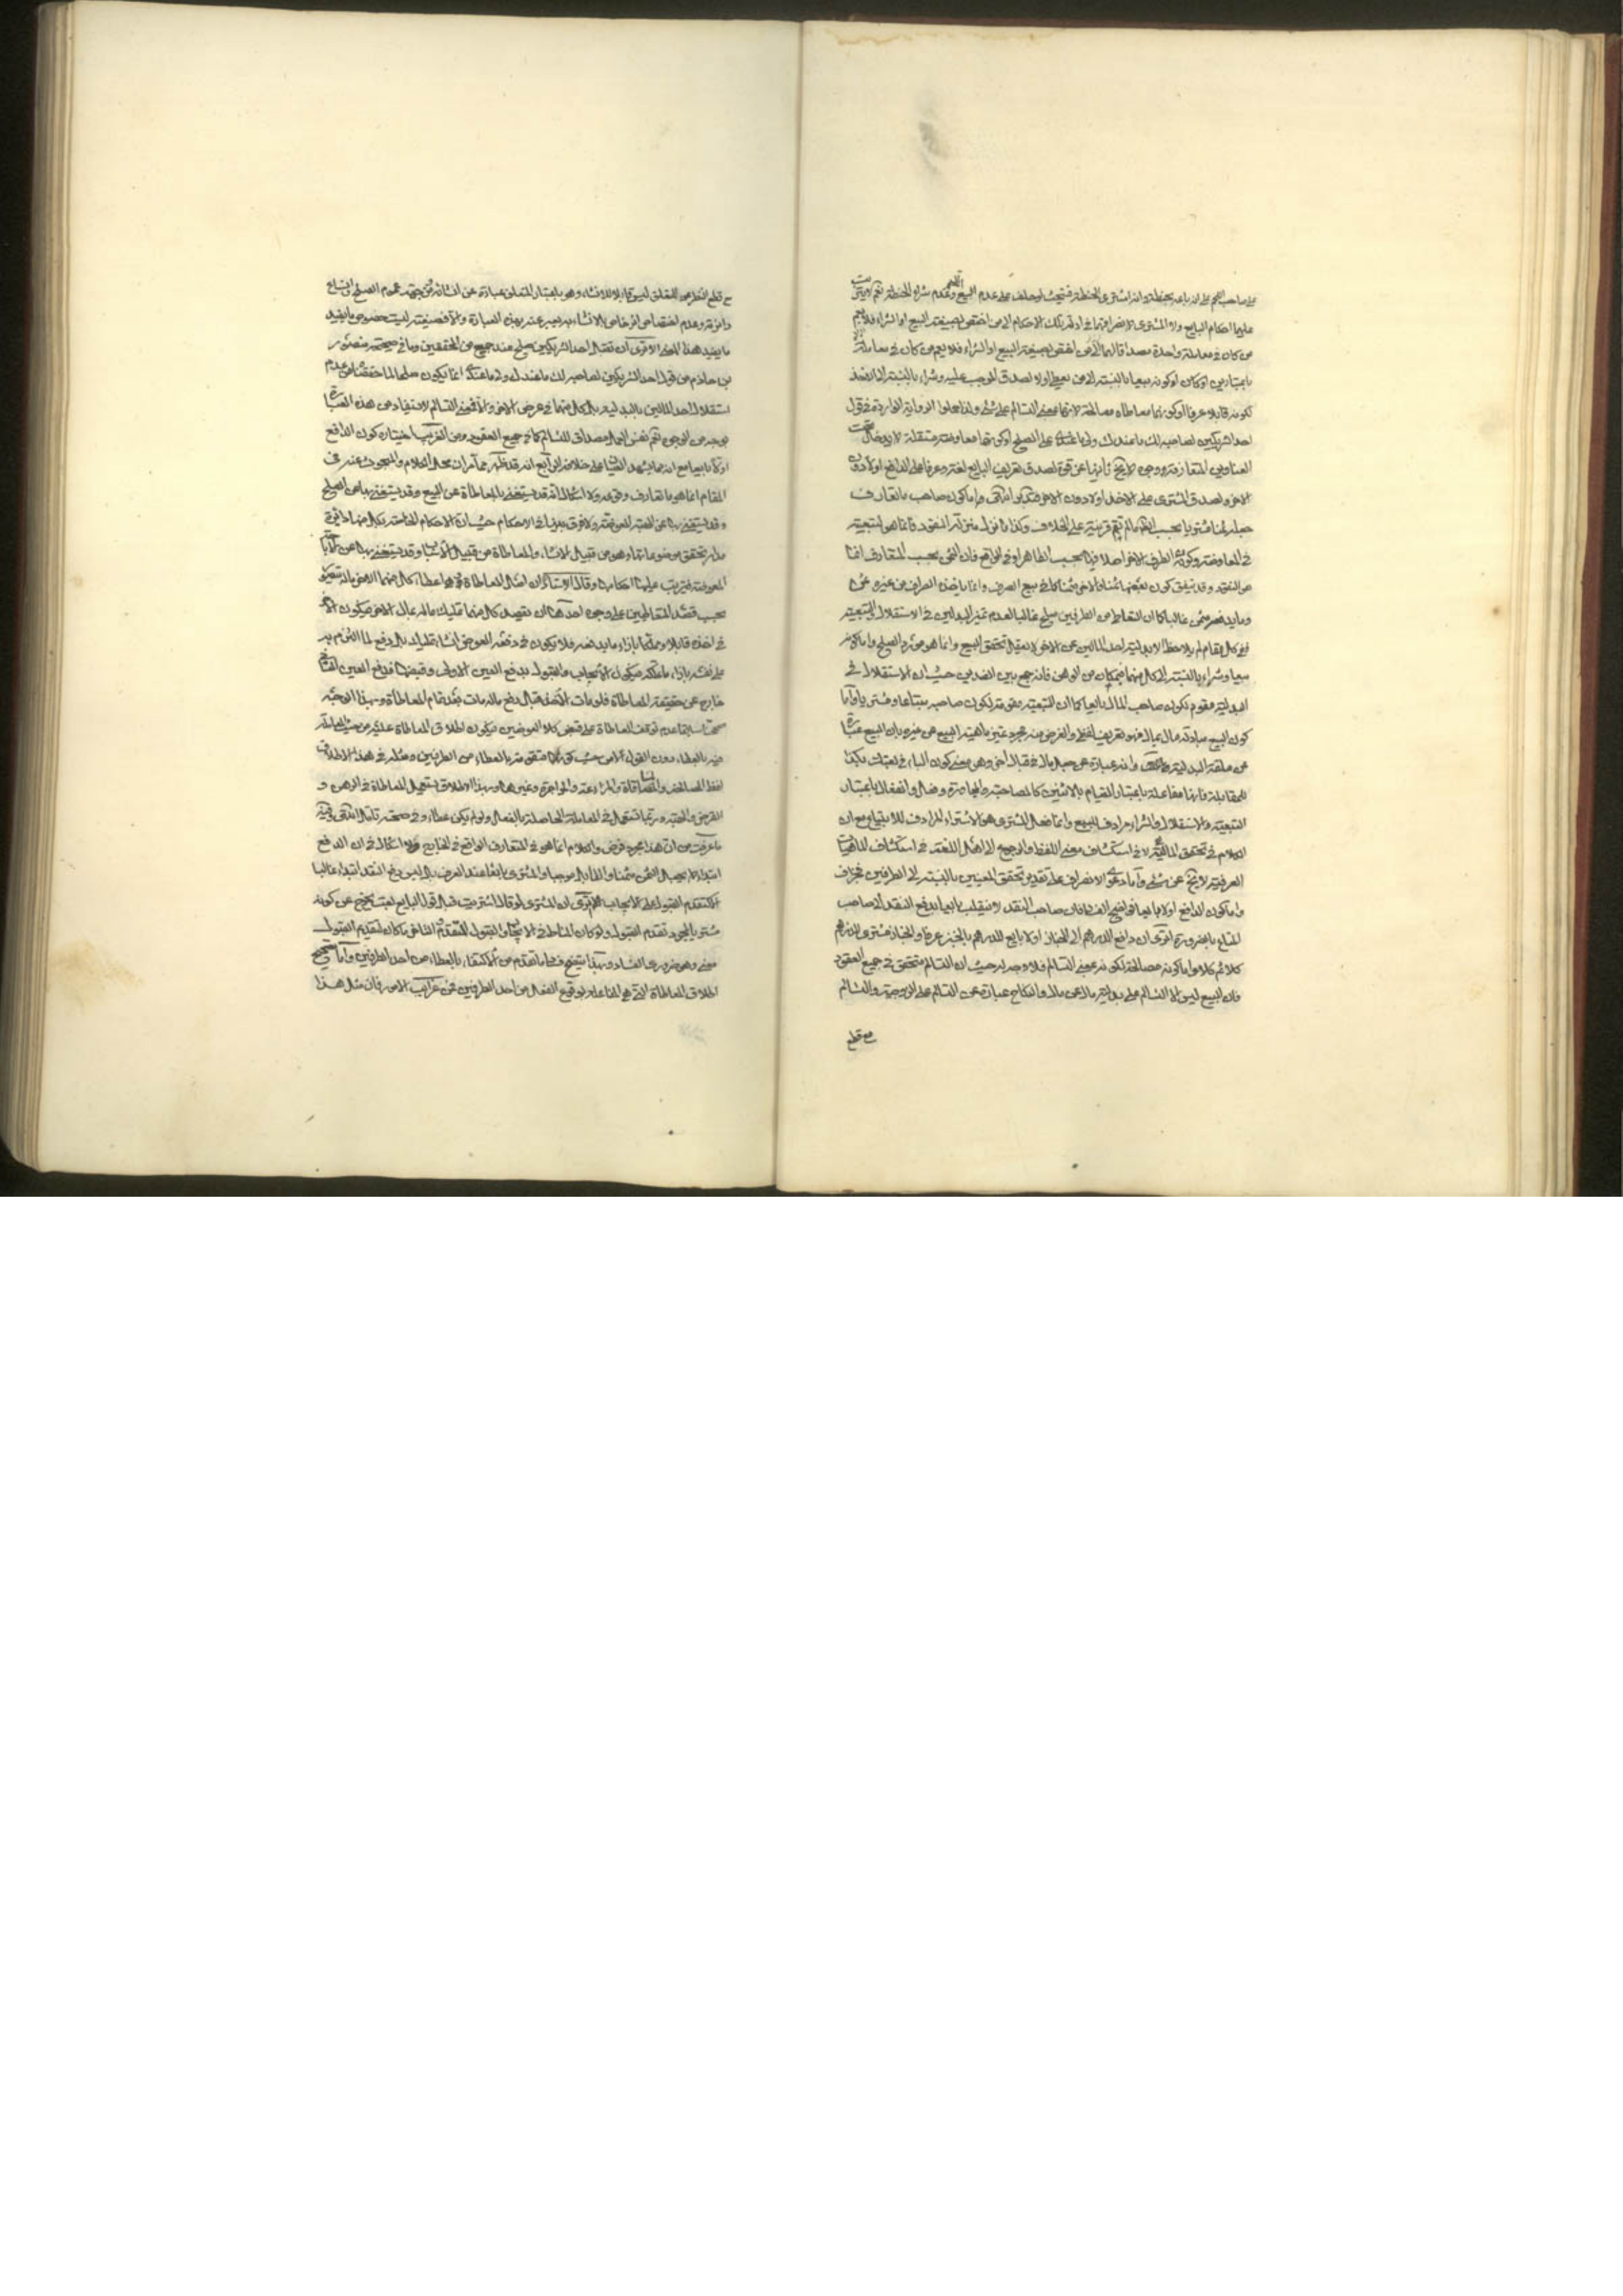 على صاحب اللحم على انه باعه بحنطة وانه اشترى الحنطة فتحنث لو حلف على عدم بيع اللحم وعدم شراء الحنطة نعم لا يترتب
عليهما احكام البايع ولا المشترى لانصرافهما في ادلة تلك الاحكام الى من اختص بصيغة البيع او الشراء فلا يعم
من كان في معاملة واحدة مصداقا لهما باعتبارين
باعتبارين او كان او كونه بيعا بالنسبة الى من يعطى اولا لصدق الموجب عليه وشراء بالنسبة الى الاخذ
لكونه قابلا عرفا او كونها معاطاة مصالحة لانها بمعنى التسالم على شئ ولذا حملوا الرواية الواردة في قول
احد الشريكين لصاحبه لك ما عندك ولى ما عندى على الصلح او كونها معاوضة مستقلة لا يدخل تحت
العناوين المتعارفة وجوه لا يخ ثانيها عن قوة لصدق تعريف البايع لغة وعرفا على الدافع اولا دون
الاخر وصدق المشترى على الاخذ اولا دون الاخر فتدبر انتهى واما كون صاحب ما تعارف
جعله ثمنا مشتريا بحسب الظاهر ما لم تقم قرينة على الخلاف وكذا ما نزل منزلة النقود فانما هو لتبعيته
في المعاوضة وكون الطرف الاخر اصلا فيها بحسب الظاهر او في الواقع فان الثمن بحسب المتعارف انما
هو النقد وقد يتفق كون بعضها ثمنا والاخر مثمنا كما في بيع الصرف وانما ياخذ الصراف من غيره عوض
وما يدفعه ثمن غالبا كما ان التعاطي من الطرفين صلح غالبا لعدم تميز البدلين في الاستقلال والتبعية
ففي كل مقام لم يلاحظ الا بدلية احد المالين عن الاخر لا يعقل تحقق البيع وانما هو مورد الصلح واما كونه
بيعا وشراء بالنسبة الى كل منهما فبمكان من الوهن فانه جمع بين الضدين حيث ان الاستقلال في
البدلية مقوم لكون صاحب المال بايعا كما ان التبعية مقومة لكون صاحبه مبتاعا ومشتريا واما
كون البيع مبادلة مال بمال فهو تعريف لفظى والغرض منه مجرد تميز ماهية البيع عن غيره بان البيع عبارة
عن علقة البدلية وانه عبارة عن جعل مال في قبال اخر وهو معنى كون الباء في بعتك بكذا
للمقابلة فانها مفاعلة باعتبار القيام بالاثنين كالمصاحبة والمجاورة وفعل وانفعال باعتبار
التبعية والاستقلال والشراء مرادف للبيع وانما فعل المشترى هو الاشتراء المرادف للابتياع مع ان
الكلام في تحقق الماهية لا في استكشاف معنى اللفظ والرجوع الى اهل اللغة في استكشاف الماهيات
العرفية لا يخ عن شئ واما دعوى الانصراف على تقدير تحقق المعنيين بالنسبة الى الطرفين فجزاف
واما كون الدافع اولا بايعا فواضح الفساد فان صاحب النقد لا ينقلب بايعا بدفع النقد الى صاحب
المتاع بالضرورة اترى ان دافع الدرهم الى الخباز اولا بايع للدرهم بالخبز عرفا والخباز مشترى للدرهم
كلا ثم كلا واما كونه مصالحة لكونه بمعنى التسالم فلا وجه له حيث ان التسالم متحقق في جميع العقود
فان البيع ليس الا التسالم على بدلية مال عن مال والنكاح عبارة عن التسالم على الزوجية والتسالم
مع قطع
مع قطع النظر عن المتعلق ليس قابلا للانشاء وهو باعتبار المتعلق عبارة عن انشائه فمن جهة عموم الصلح واتساع
دائرته وعدم اختصاص الخاص بالانشاء به يعبر عنه بهذه العبارة والا فصيغته ليست خصوص ما يفيد
ما يفيد هذا المعنى الاترى ان تقبل احد الشريكين صلح عند جمع من المحققين وما في صحيحة منصور
بن حازم من قول احد الشريكين لصاحبه لك ما عندك ولى ما عندى انما يكون صلحا لما حققناه من عدم
استقلال احد المالين بالبدلية بل كل منهما في عرض الاخر والا فمعنى التسالم لا يستفاد من هذه العبارة
بوجه من الوجوه نعم نفس العمل مصداق للتسالم كما في جميع العقود ومن الغريب اختياره كون الدافع
اولا بايعا مع انه مما يشهد العيان على خلافه الرابع انه قد ظهر مما مر ان محل الكلام والمبحوث عنه في
المقام انما هو ما تعارف وقوعه ولا اشكال انه قد يستغنى بالمعاطاة عن البيع وقد يستغنى بها عن الصلح
وقد يستغنى بها عن الهبة المعوضة ولا فرق بينها في الاحكام حيث ان الاحكام الخاصة بكل منها دائرة
مدار تحقق موضوعاتها وهو من قبيل الانشاء والمعاطاة من قبيل الاسباب وقد يستغنى بها عن الهبة
المعوضة فيترتب عليها احكامها وقال الاستاد ان اصل المعاطاة وهي اعطاء كل منهما الاخر ماله يتصور
بحسب قصد المتعاطيين على وجوه احدها ان يقصد كل منهما تمليك ماله بمال الاخر فيكون الاخر
في اخذه قابلا ومتملكا بازاء ما يدفعه فلا يكون في دفعه العوض انشاء تمليك بل دفع لما التزم به
على نفسه بازاء ما تملكه فيكون الايجاب والقبول بدفع العين الاولى وقبضها فدفع العين الثانية
خارج عن حقيقة المعاطاة فلو مات الاخذ قبل دفع ماله مات بعد تمام المعاطاة وبهذا الوجه
صححنا سابقا عدم توقف المعاطاة على قبض كلا العوضين فيكون اطلاق المعاطاة عليه من حيث حصول المعاملة
فيه بالعطاء دون القول لا من حيث كونها متقومة بالعطاء من الطرفين ومثله في هذا الاطلاق
لفظ المصالحة والمساقاة والمزارعة والمواجرة وغيرها وبهذا الاطلاق يستعمل المعاطاة في الرهن و
القرض والهبة وربما تستعمل في المعاملة الحاصلة بالفعل ولو لم يكن عطاء وفي صحته تأمل انتهى وفيه
ما عرفت من ان هذا مجرد فرض والكلام انما هو في المتعارف الواقع في الخارج ولا اشكال في ان الدفع
ابتداء لا يجعل الثمن مثمنا والقابل موجبا والمشترى بايعا عند العرف بل ليس دفع النقد ابتداء غالبا
الا كتقدم القبول على الايجاب الاترى ان المشترى لو قال اشتريت قبل قول البايع بعت لا يخرج عن كونه
مشتريا بمجرد تقدم القبول ولو كان المناط في الايجاب والقبول التقدم والتاخر ما كان لتقديم القبول
معنى وهو ضرورى الفساد وبهذا يتضح فساد ما تقدم من الاكتفاء بالعطاء من احد الطرفين واما تصحيح
اطلاق المعاطاة التي هي المفاعلة بوقوع الفعل من احد الطرفين فمن غرائب الامور فان مثل هذا